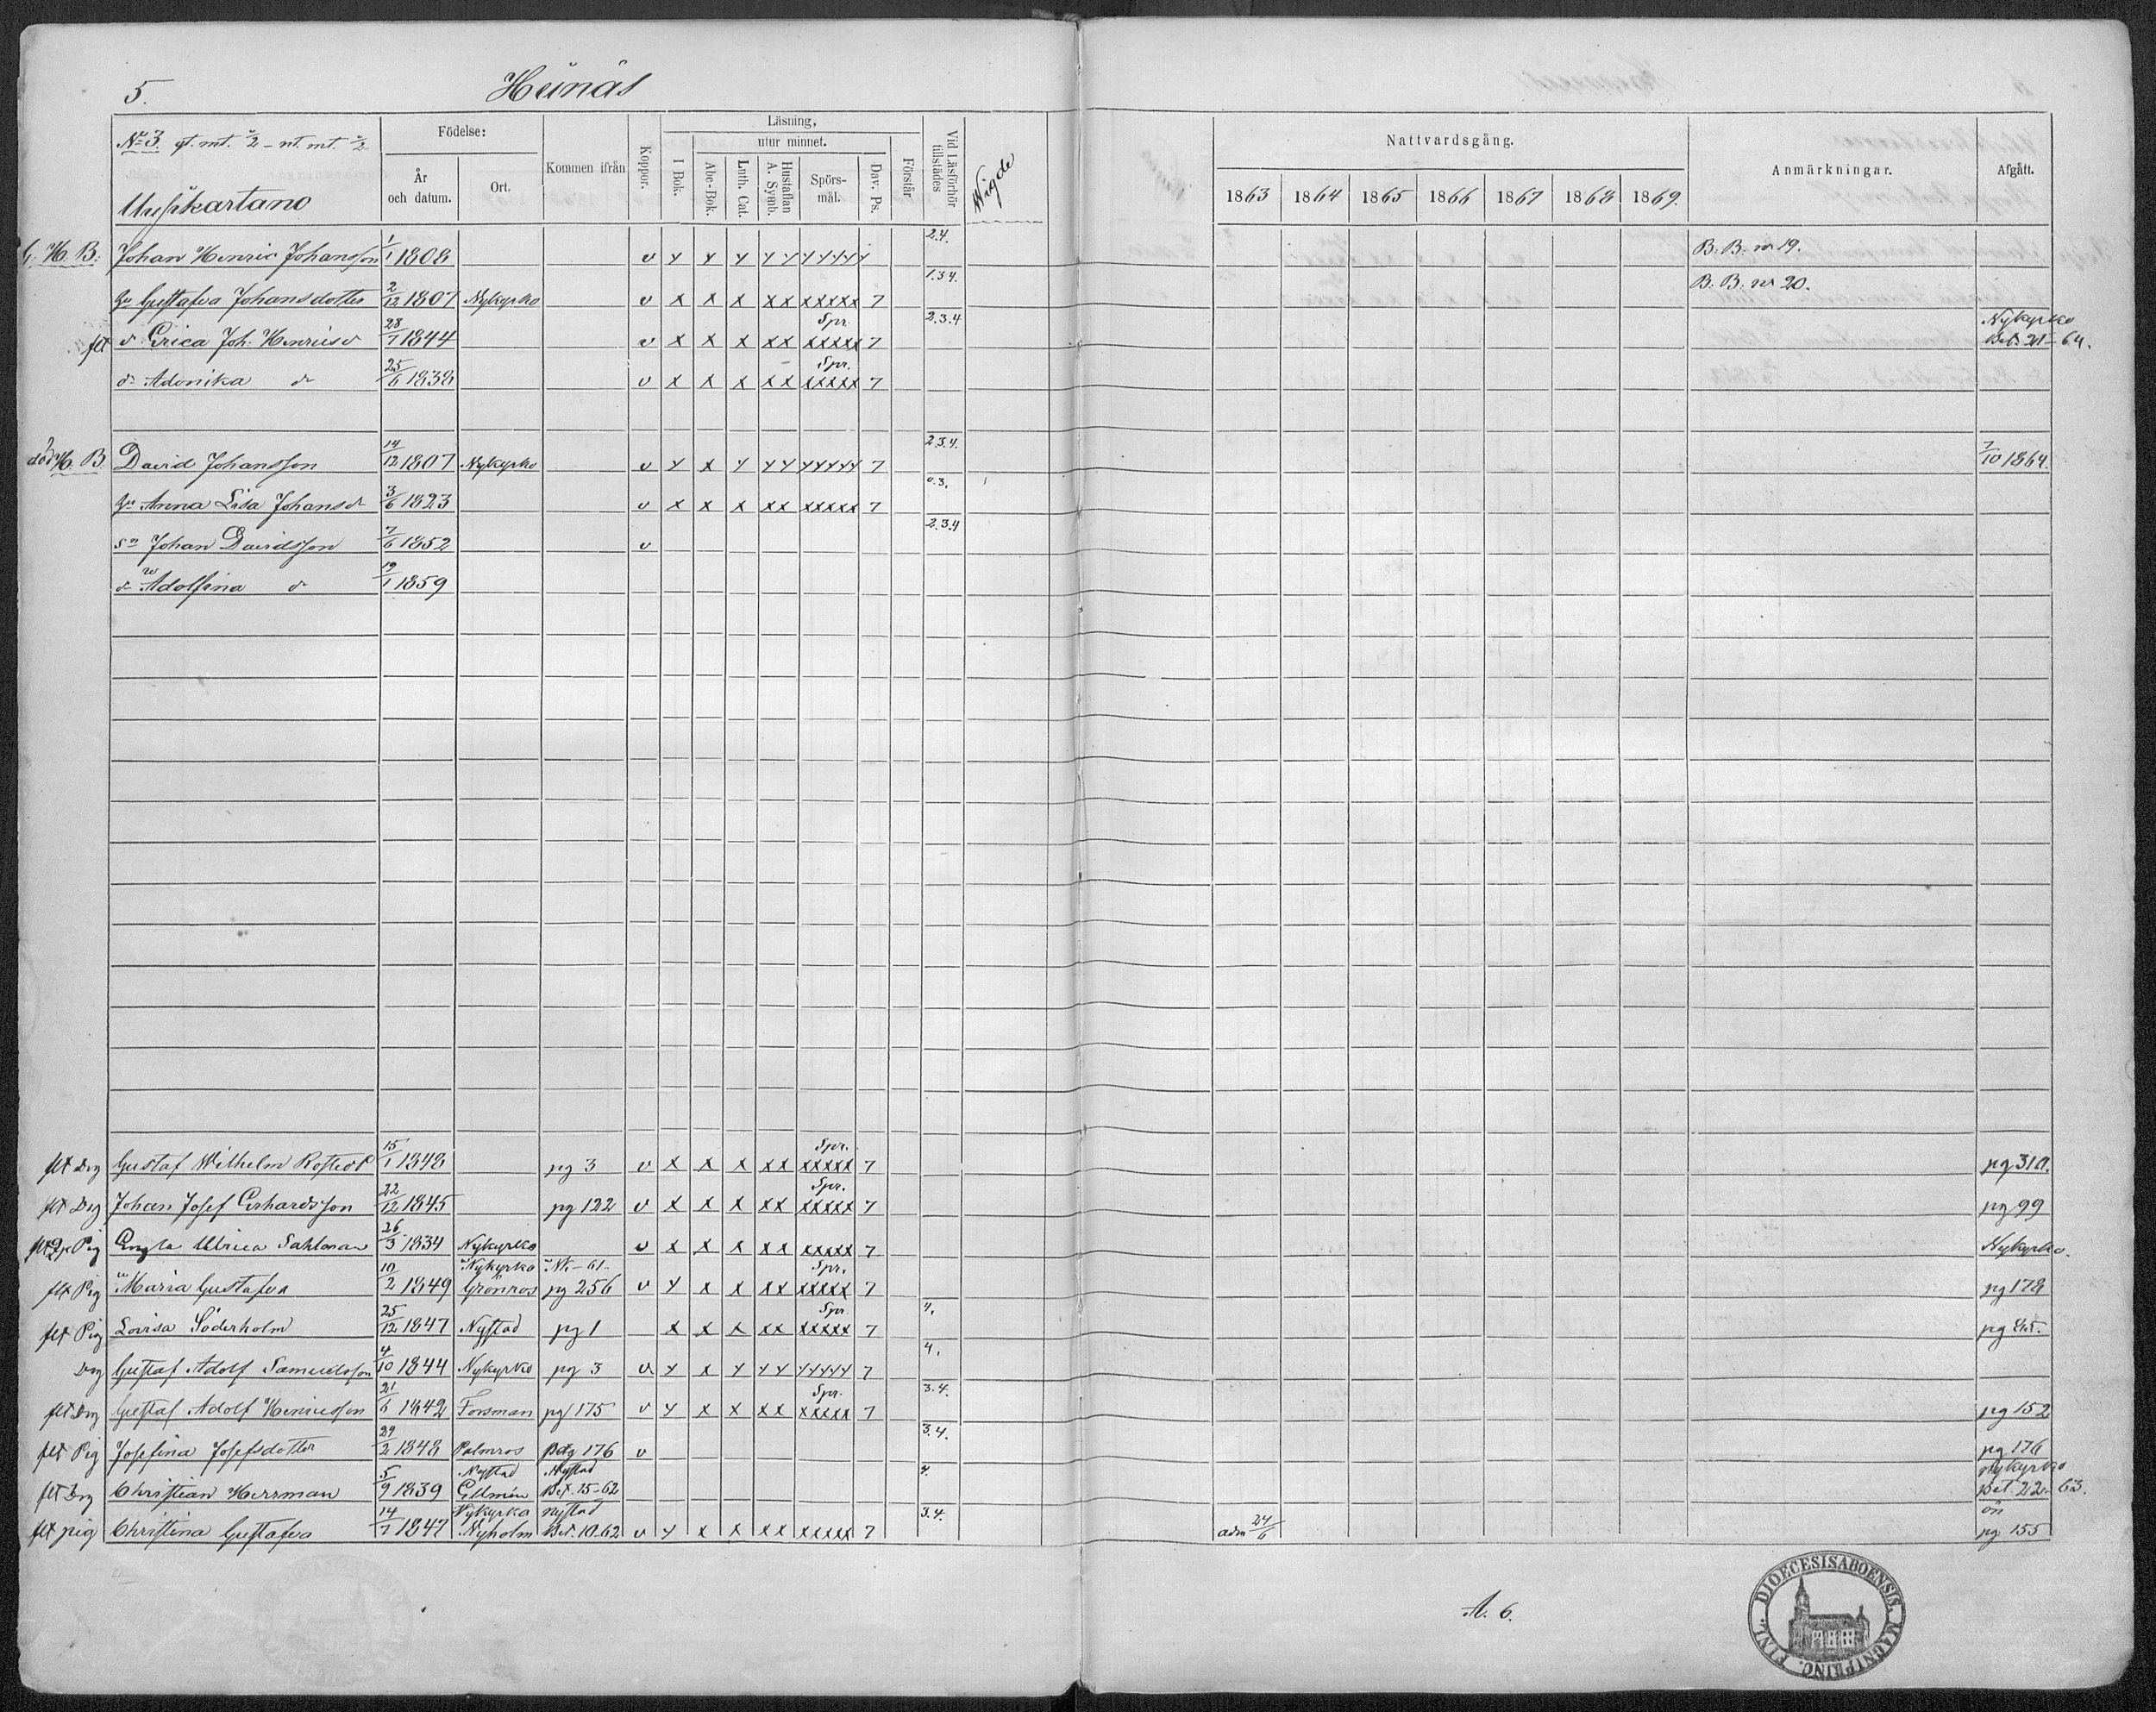 5. Heinäs
No 3. gt. mt. 2/2 - nt. mt. 2/2
Födelse:
Kommen ifrån
Koppor.
Läsning,
utur minnet.
I Bok.
Abc-Bok.
Luth. Cat.
Hustaflan
A. Symb.
Spörs-
mål.
Dav. Ps.
Förstår
Vid Läsförhör
tillstädes
Wigde
År
och datum.
Ort.
Nattvardsgång.
1863 1864 1865 1866 1867 1868 1869.
Anmärkningar.
Afgått.
Uusikartano
H. B. Johan Henric Johansson 1/1 1808 v y y y y y y y y y y 2.4. B. B. nr 19.
hu Gustafva Johansdotter 2/12 1807 Nykyrko v x x x x x x x x x x 7 1.3.4. B. B. nr 20.
flt dr Erica Joh. Henricsdr 28/7 1844 v x x x x x Spr. x x x x x 7 2.3.4 Nykyrko Bet. 21-64.
dr Adonika dr 25/6 1838 v x x x x x Spr. x x x x x 7
död H. B. David Johansson 14/12 1807 Nykyrko v y x y y y y y y y y 7 2.3.4. 7/10 1864.
hu Anna Lisa Johansdr 3/6 1823 v x x x x x x x x x x 7 0.3.
sn Johan Davidsson 7/6 1852 v 2.3.4
dr Adolfina dr 19/1 1859
flt Drg Gustaf Wilhelm Rostedt 15/1 1848 pg 3 v x x x x x Spr. x x x x x 7 pg 310.
flt Drg Johan Josef Erhardsson 22/12 1845 pg 122 v x x x x x Spr. x x x x x 7 pg 99
flt Pig Engla Ulrica Sahlman 26/3 1834 Nykyrko v x x x x x x x x x x 7 Nykyrko.
flt Pig Maria Gustafva 10/2 1849 Nykyrko Grönros Nk-61. pg 256 v y x x x x Spr. x x x x x 7 pg 178
flt Pig Lovisa Söderholm 25/12 1847 Nystad pg 1 x x x x x Spr. x x x x x 7 4.
Drg Gustaf Adolf Samuelsson 4/10 1844 Nykyrko pg 3 v y x y y y y y y y y 7 4.
flt Drg Gustaf Adolf Henricsson 21/6 1842 Forsman pg 175 v y x x x x Spr. x x x x x 7 3.4. pg 152
flt Pig Josefina Josefsdotter 29/2 1848 Palmros pg 176 v 3.4. pg 176
flt Drg Christian Herrman 5/9 1839 Nystad Ellmén Nystad Bet. 15-62 4. Nykyrko Bet. 22-63.
flt pig Christina Gustafva 14/7 1847 Nykyrko Nyholm Nystad Bet. 10-62 v y x x x x x x x x x 7 3.4. adm 24/6 ön pg 155
A. 6.
DIOECESIS ABOENSIS. MAGN. PRINC. FINL.